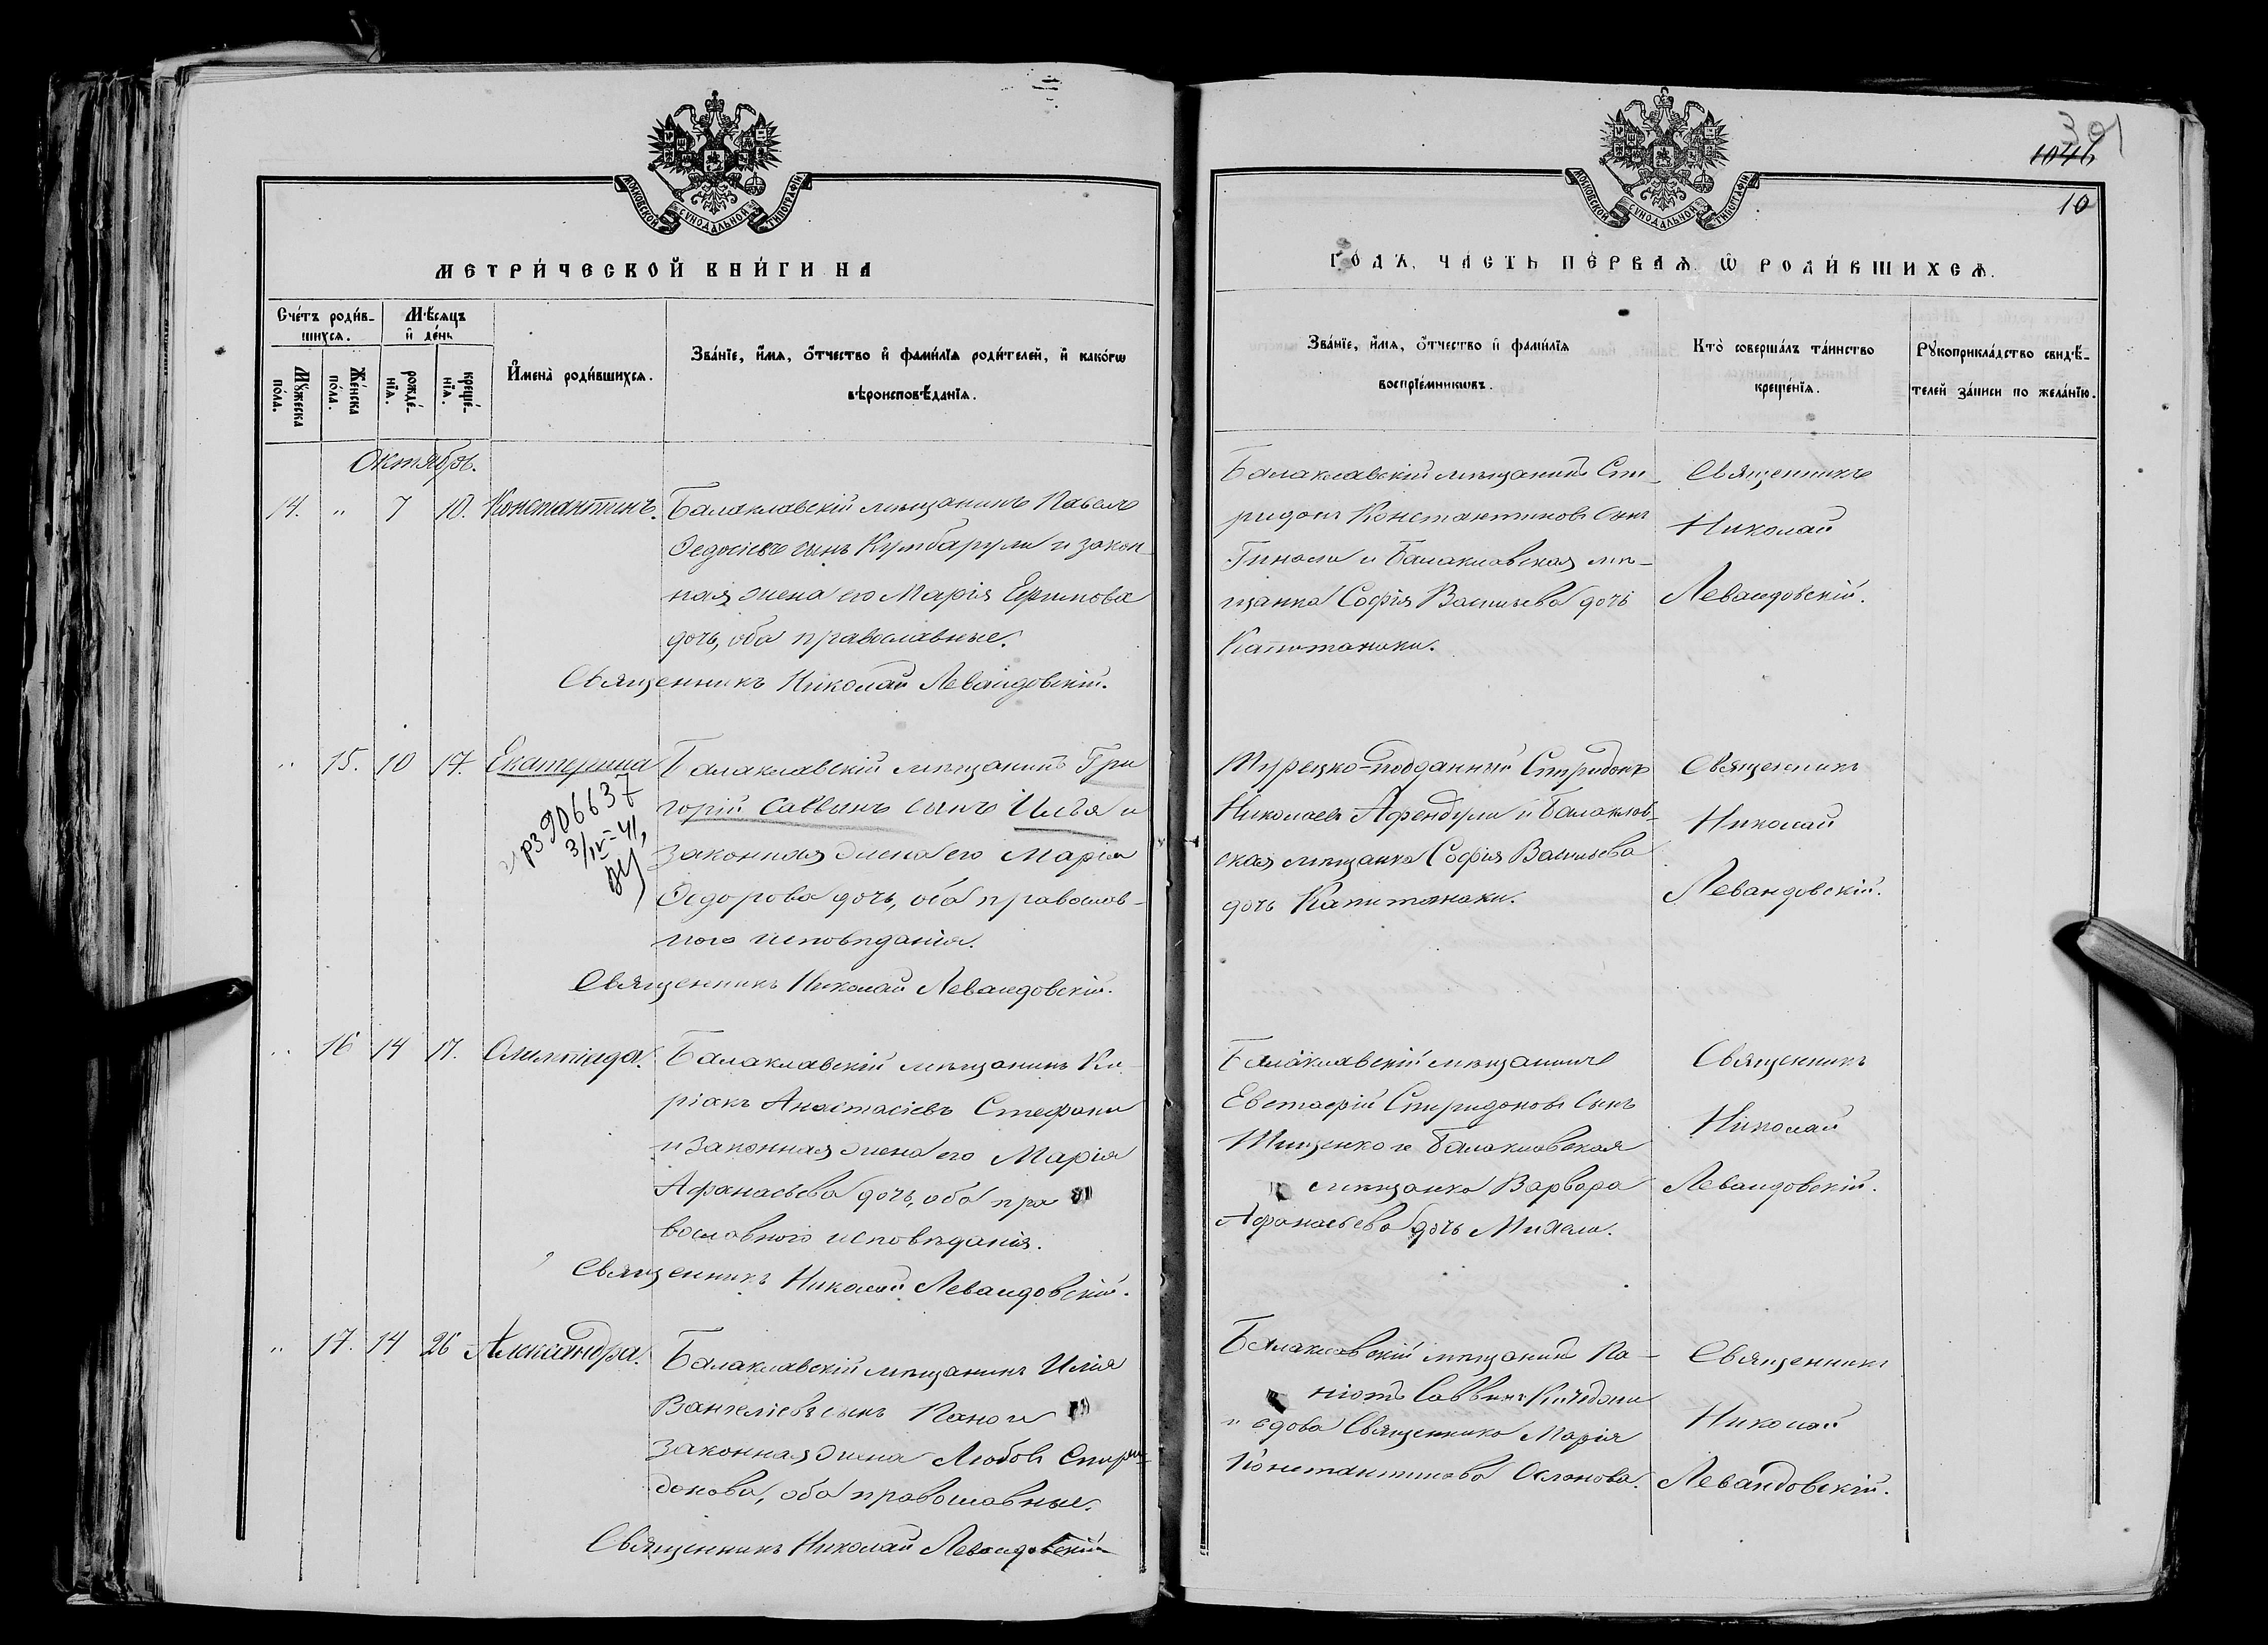 МОСКОВСКОЙ СѴНОДАЛЬНОЙ ТИПОГРАФІИ
МЕТРИ́ЧЕСКОЙ КНИ́ГИ НА
Сче́тъ роди́в-
шихсѧ.
Мѣ́сѧцъ
и҆ де́нь
Мꙋ́жеска по́ла.
Же́нска по́ла.
рожде́-нїѧ.
креще́-нїѧ.
И҆мена̀ роди́вшихсѧ.
Зва́нїе, и҆́мѧ, ѻ҆́тчество и҆ фами́лїѧ роди́телей, и҆ како́гѡ
вѣроисповѣ́данїѧ.
Октябрь.
14. " 7 10. Константинъ. Балаклавскій мѣщанинъ Павелъ
Ѳедосіевъ сынъ Кумбарули и закон-
ная жена его Марія
дочь, оба православные.
Священникъ Николай Левандовскій.
" 15. 10 17. Екатерина Балаклавскій мѣщанинъ Гри
горій Саввинъ сынъ Илья и
законная жена его Марія
Ѳедорова дочь, оба православ-
ного исповѣданія.
906637
3/IV-41,
Священникъ Николай Левандовскій.
" 16 14 17. Олимпіада. Балаклавскій мѣщанинъ Ки-
ріакъ Анастасіевъ Стефани
и законная жена его Марія
Афанасьева дочь, оба пра
вославного исповѣданія.
Священникъ Николай Левандовскій.
" 17. 14 26 Александра. Балаклавскій мѣщанинъ Илія
Вангеліевъ сынъ Пано и
законная жена Любовь Спири-
донова, оба православные.
Священникъ Николай Левандовскій
301
1046
10
МОСКОВСКОЙ СѴНОДАЛЬНОЙ ТИПОГРАФІИ
ГО́ДЪ, ЧА́СТЬ ПЕ́РВАѦ, Ѡ҆ РОДИ́ВШИХСѦ.
Зва́нїе, и҆́мѧ, ѻ҆́тчество и҆ фами́лїѧ
воспрїе́мникѡвъ.
Кто̀ соверша́лъ та́инство
креще́нїѧ.
Рꙋкоприкла́дство свидѣ́-
телей за́писи по жела́нїю.
Балаклавскій мѣщанинъ Спи-
ридонъ Константиновъ сынъ
Гинали и Балаклавская мѣ-
щанка Софія Васильева дочь
Капитанаки.
Священникъ
Николай
Левандовскій.
Турецко-подданный Спиридонъ
Николаевъ Афендули и Балаклав-
ская мѣщанка Софія Васильева
дочь Капитанаки.
Священникъ
Николай
Левандовскій.
Балаклавскій мѣщанинъ
Евстафій Спиридоновъ сынъ
Тищенко и Балаклавская
мѣщанка Варвара
Афанасьева дочь Михели.
Священникъ
Николай
Левандовскій.
Балаклавскій мѣщанинъ Па-
ніотъ Саввинъ
и вдова Священника Марія
Константинова Асланова.
Священникъ
Николай
Левандовскій.